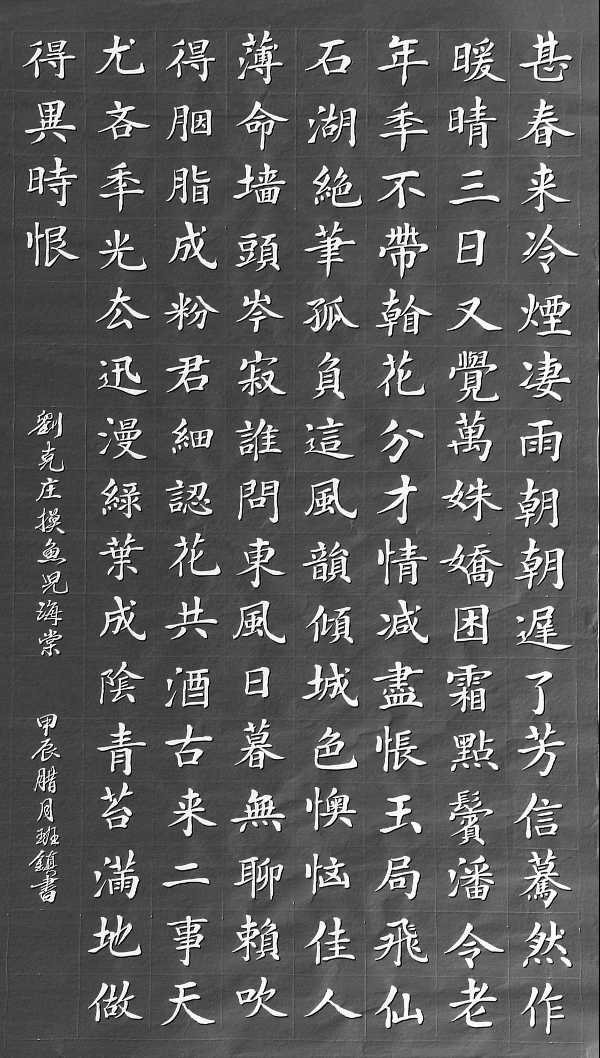 甚春来冷煙凄雨朝朝遲了芳信驀然作
暖晴三日又覺萬姝嬌困霜點鬢潘令老
年年不帶看花分才情减盡悵玉局飛仙
石湖絶筆孤負這風韻傾城色懊恼佳人
薄命墙頭岑寂誰問東風日暮無聊賴吹
得胭脂成粉君細認花共酒古来二事天
尤吝年光去迅漫綠葉成陰青苔滿地做
得異時恨
劉克庄摸魚児海棠
甲辰腊月班鎮書